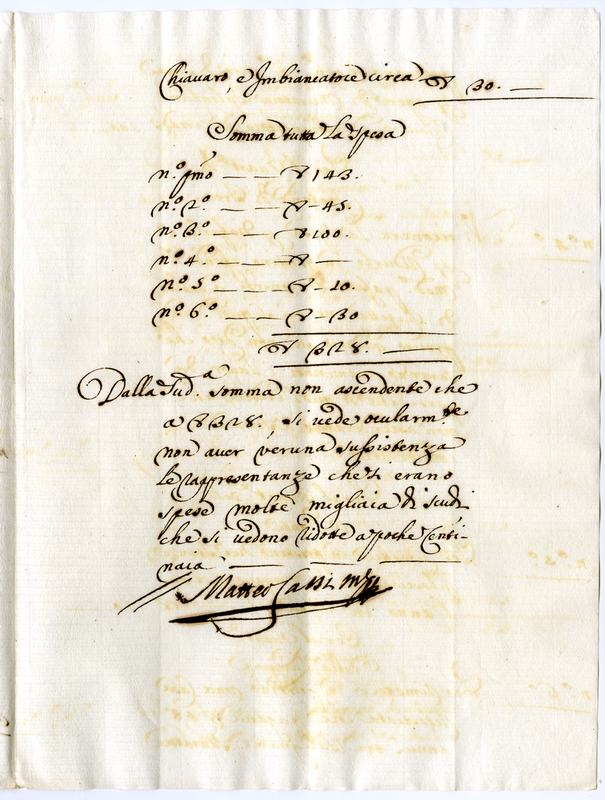 Chiavaro, e Imbiancatore circa ▽ 30. —
Somma tutta la spesa
n.º pmo — — ▽ 143.
n.º 2.º — — ▽ - 45.
n.º 3.º — — ▽ 100.
n.º 4.º — — ▽ —
n.º 5.º — — ▽ - 10.
n.º 6.º — — ▽ - 30
▽ 328. —
Dalla sud.a somma non ascendente che
a ▽ 328. si vede ocularm.te
non aver veruna sussistenza
le rappresentanze che si erano
spese molte migliaia di scudi
che si vedono ridotte a poche centi-
naia — — —
Matteo Sassi